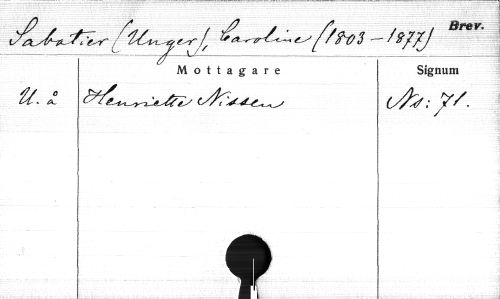 Sabatier (Unger), Caroline (1803-1877) Brev.
Mottagare Signum
U. å Henriette Nissen Ns: 71.